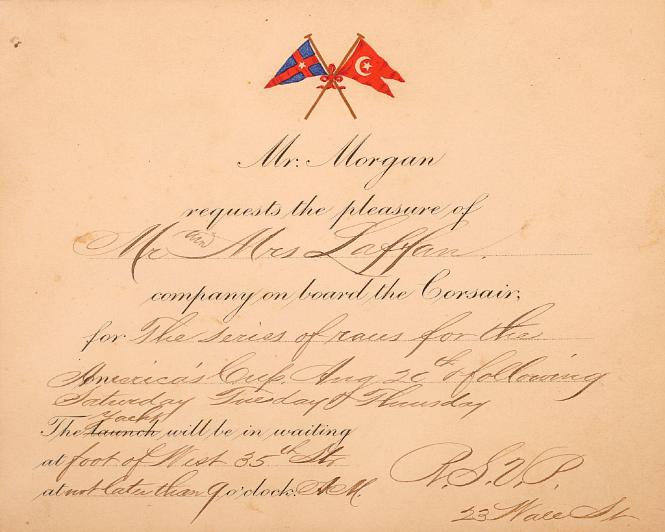 Mr. Morgan
requests the pleasure of
Mr and Mrs Laffan.
company on board the Corsair,
for The series of races for the
America's Cup, Aug 20th & following
Saturday Tuesday & Thursday
Yacht
The launch will be in waiting
at foot of West 35th St.
at not later than 9 o'clock. A.M.
R.S.V.P.
23 Wall St.